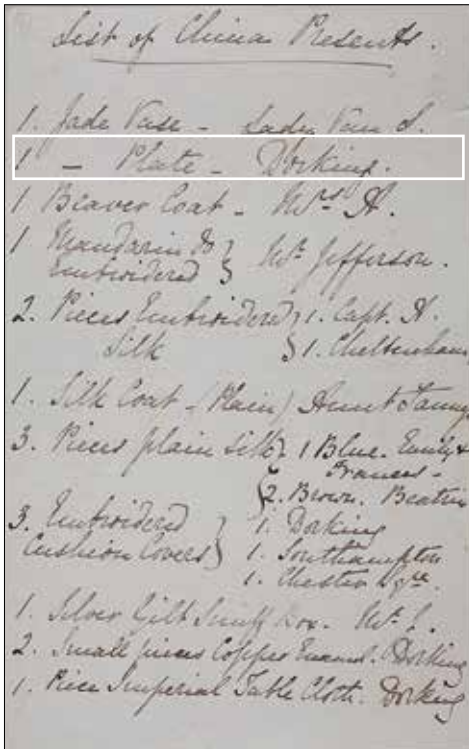 List of China Presents.
1. Jade Vase - Lady Van S.
1 - Plate - Dorking.
1 Beaver Coat - Mrs H.
1 Mandarin Do } Mr Jefferson.
Embroidered }
2. Pieces Embroidered } 1. Capt. H.
Silk } 1. Cheltenham
1. Silk Coat - (Plain) Aunt Fanny
3. Pieces plain silk } 1 Blue. Emily &
Frances -
2. Brown. Beatrice
3. Embroidered } 1. Dorking
Cushion Covers } 1. Southampton
1. Chester Sqre.
1. Silver Gilt Snuff Box. Mr
2. Small pieces Copper Enamel. Dorking
1. Piece Imperial Table Cloth. Dorking